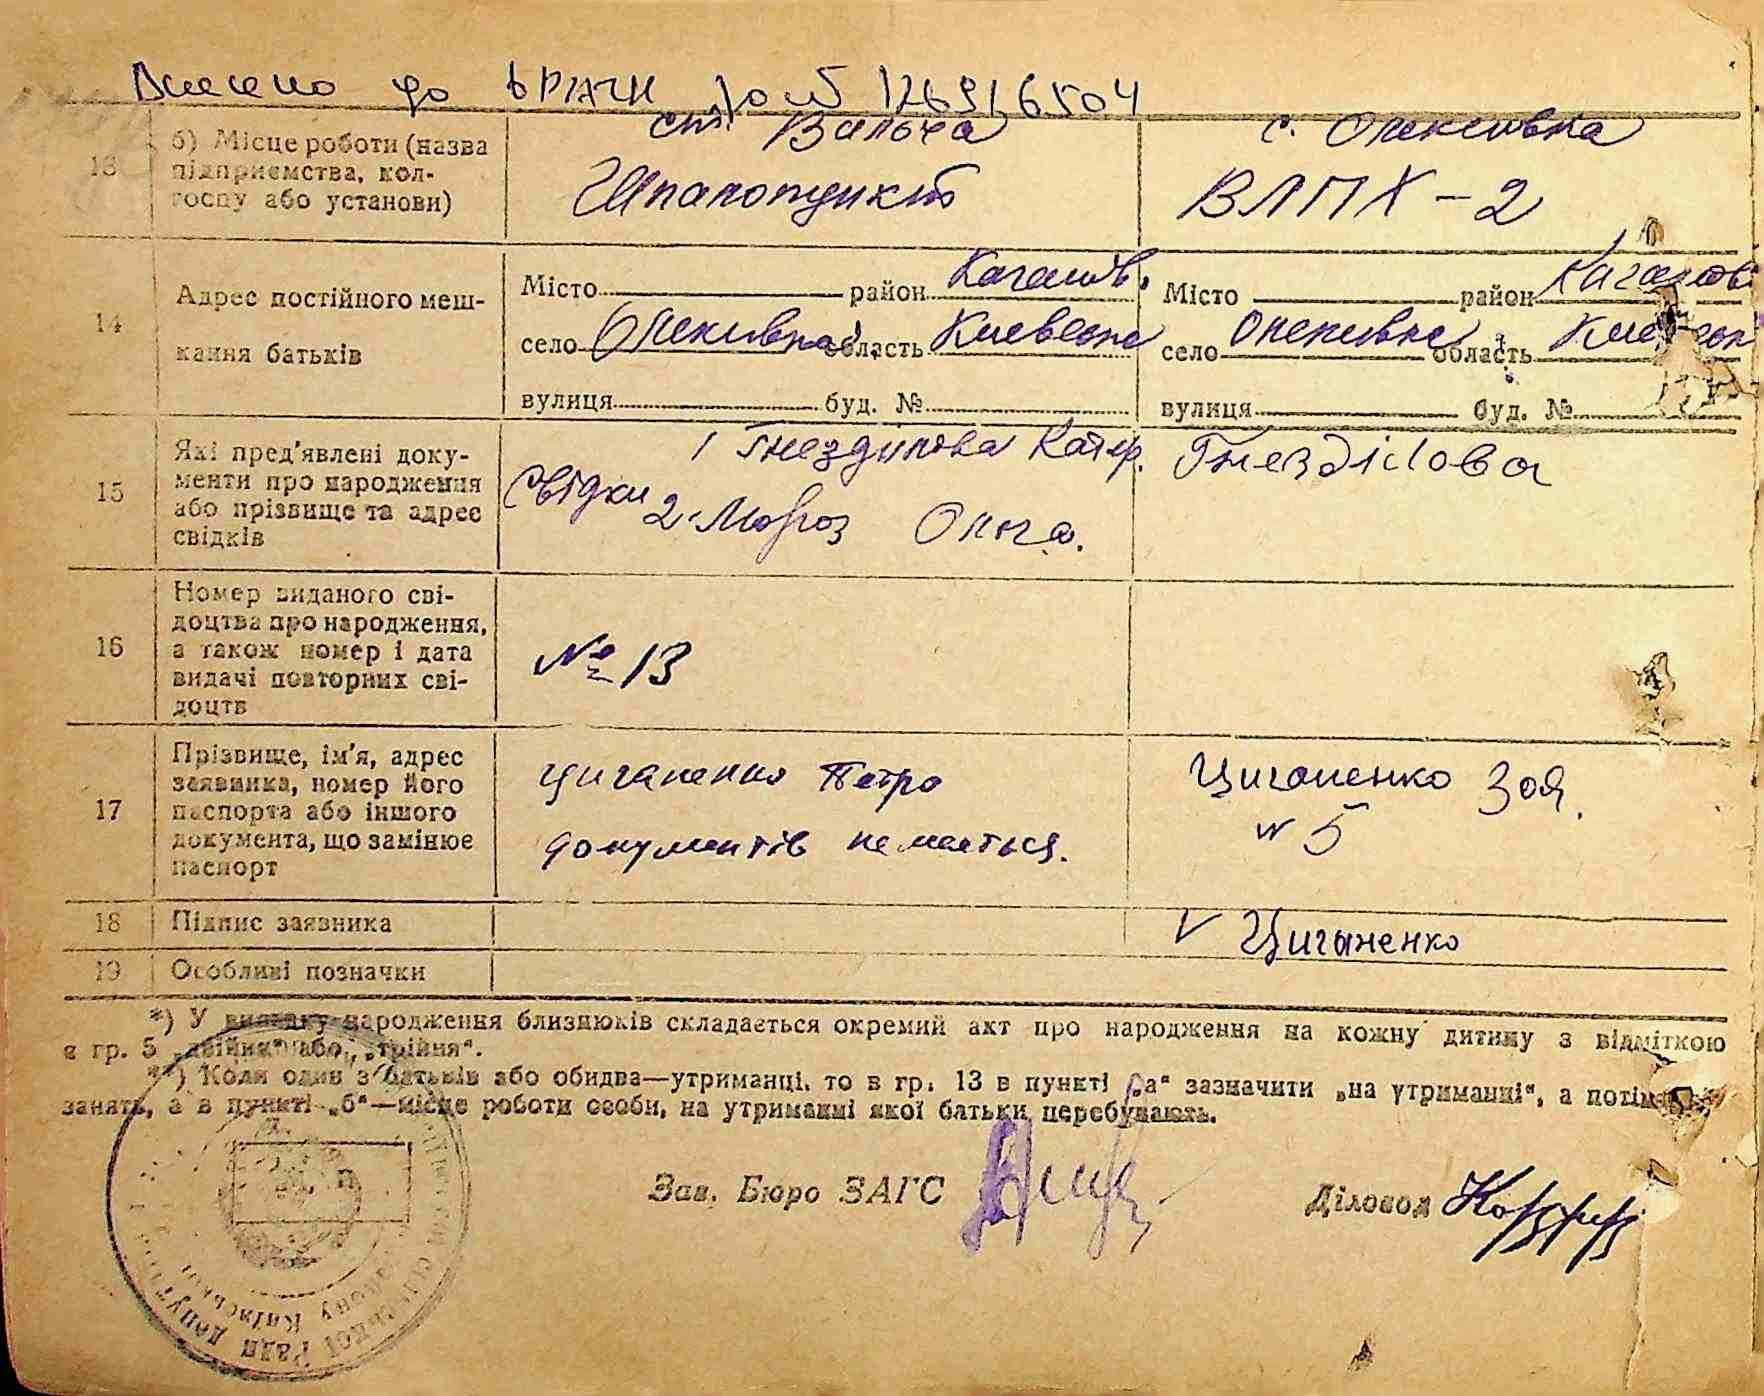 Внесено до ДРАЦС за № 126916504
13 б) Місце роботи (назва підприємства, колгоспу або установи)
ст. Вільча
Шпалопункт
с. Олексіївка
ВЛПХ - 2
14 Адрес постійного мешкання батьків
Місто район Каганов.
село Олексіївка область Киевська
вулиця буд. №
Місто район Каганов
село Олексіївка область
вулиця буд. №
15 Які пред'явлені документи про народження або прізвище та адрес свідків
1 Гнезділова Катер.
Свідки 2. Мороз Ольга.
Гнезділова
16 Номер виданого свідоцтва про народження, а також номер і дата видачі повторних свідоцтв
№ 13
17 Прізвище, ім'я, адрес заявника, номер його паспорта або іншого документа, що замінює паспорт
Циганенко Петро
документів не мається.
Циганенко Зоя.
№ 5
18 Підпис заявника
Цигыненко
19 Особливі позначки
*) У випадку народження близнюків складається окремий акт про народження на кожну дитину з відміткою
в гр. 5 „двійня" або „трійня".
**) Коли один з батьків або обидва—утриманці, то в гр. 13 в пункті „а" зазначити „на утриманні", а потім
занять, а в пункті „б"—місце роботи особи, на утриманні якої батьки перебувають.
Зав. Бюро ЗАГС
Діловод